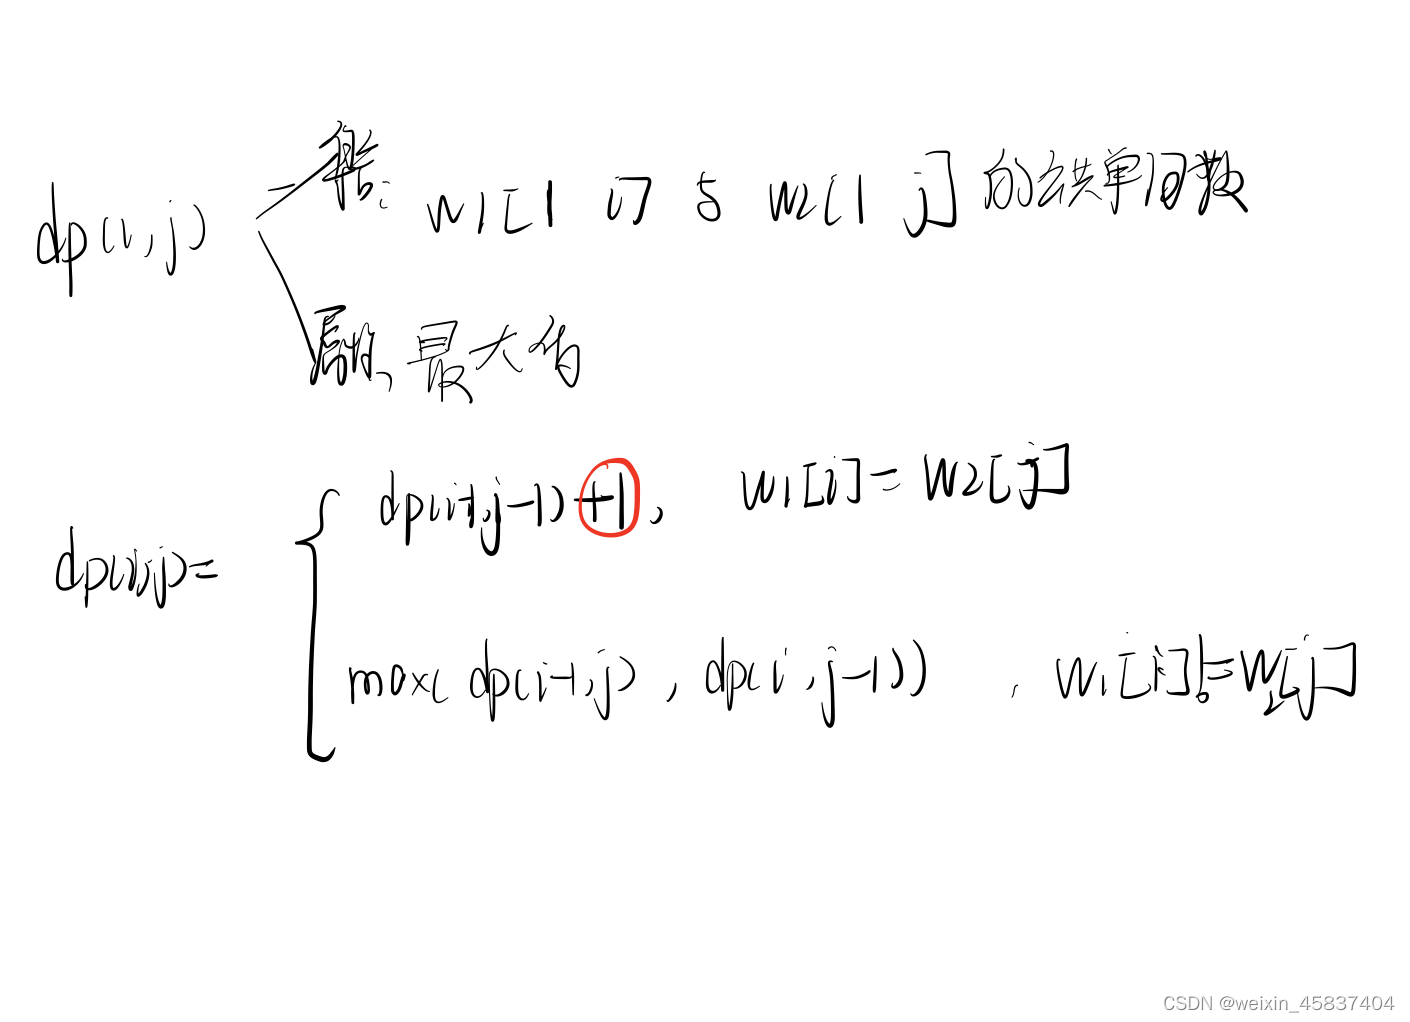 dp(i,j)
集合: w1[1 i] 与 w2[1 j] 的公共单词数
属性、最大值
dp(i,j)=
dp(i-1,j-1)+1, w1[i]=w2[j]
max(dp(i-1,j), dp(i,j-1)) , w1[i]!=w2[j]
CSDN @weixin_45837404